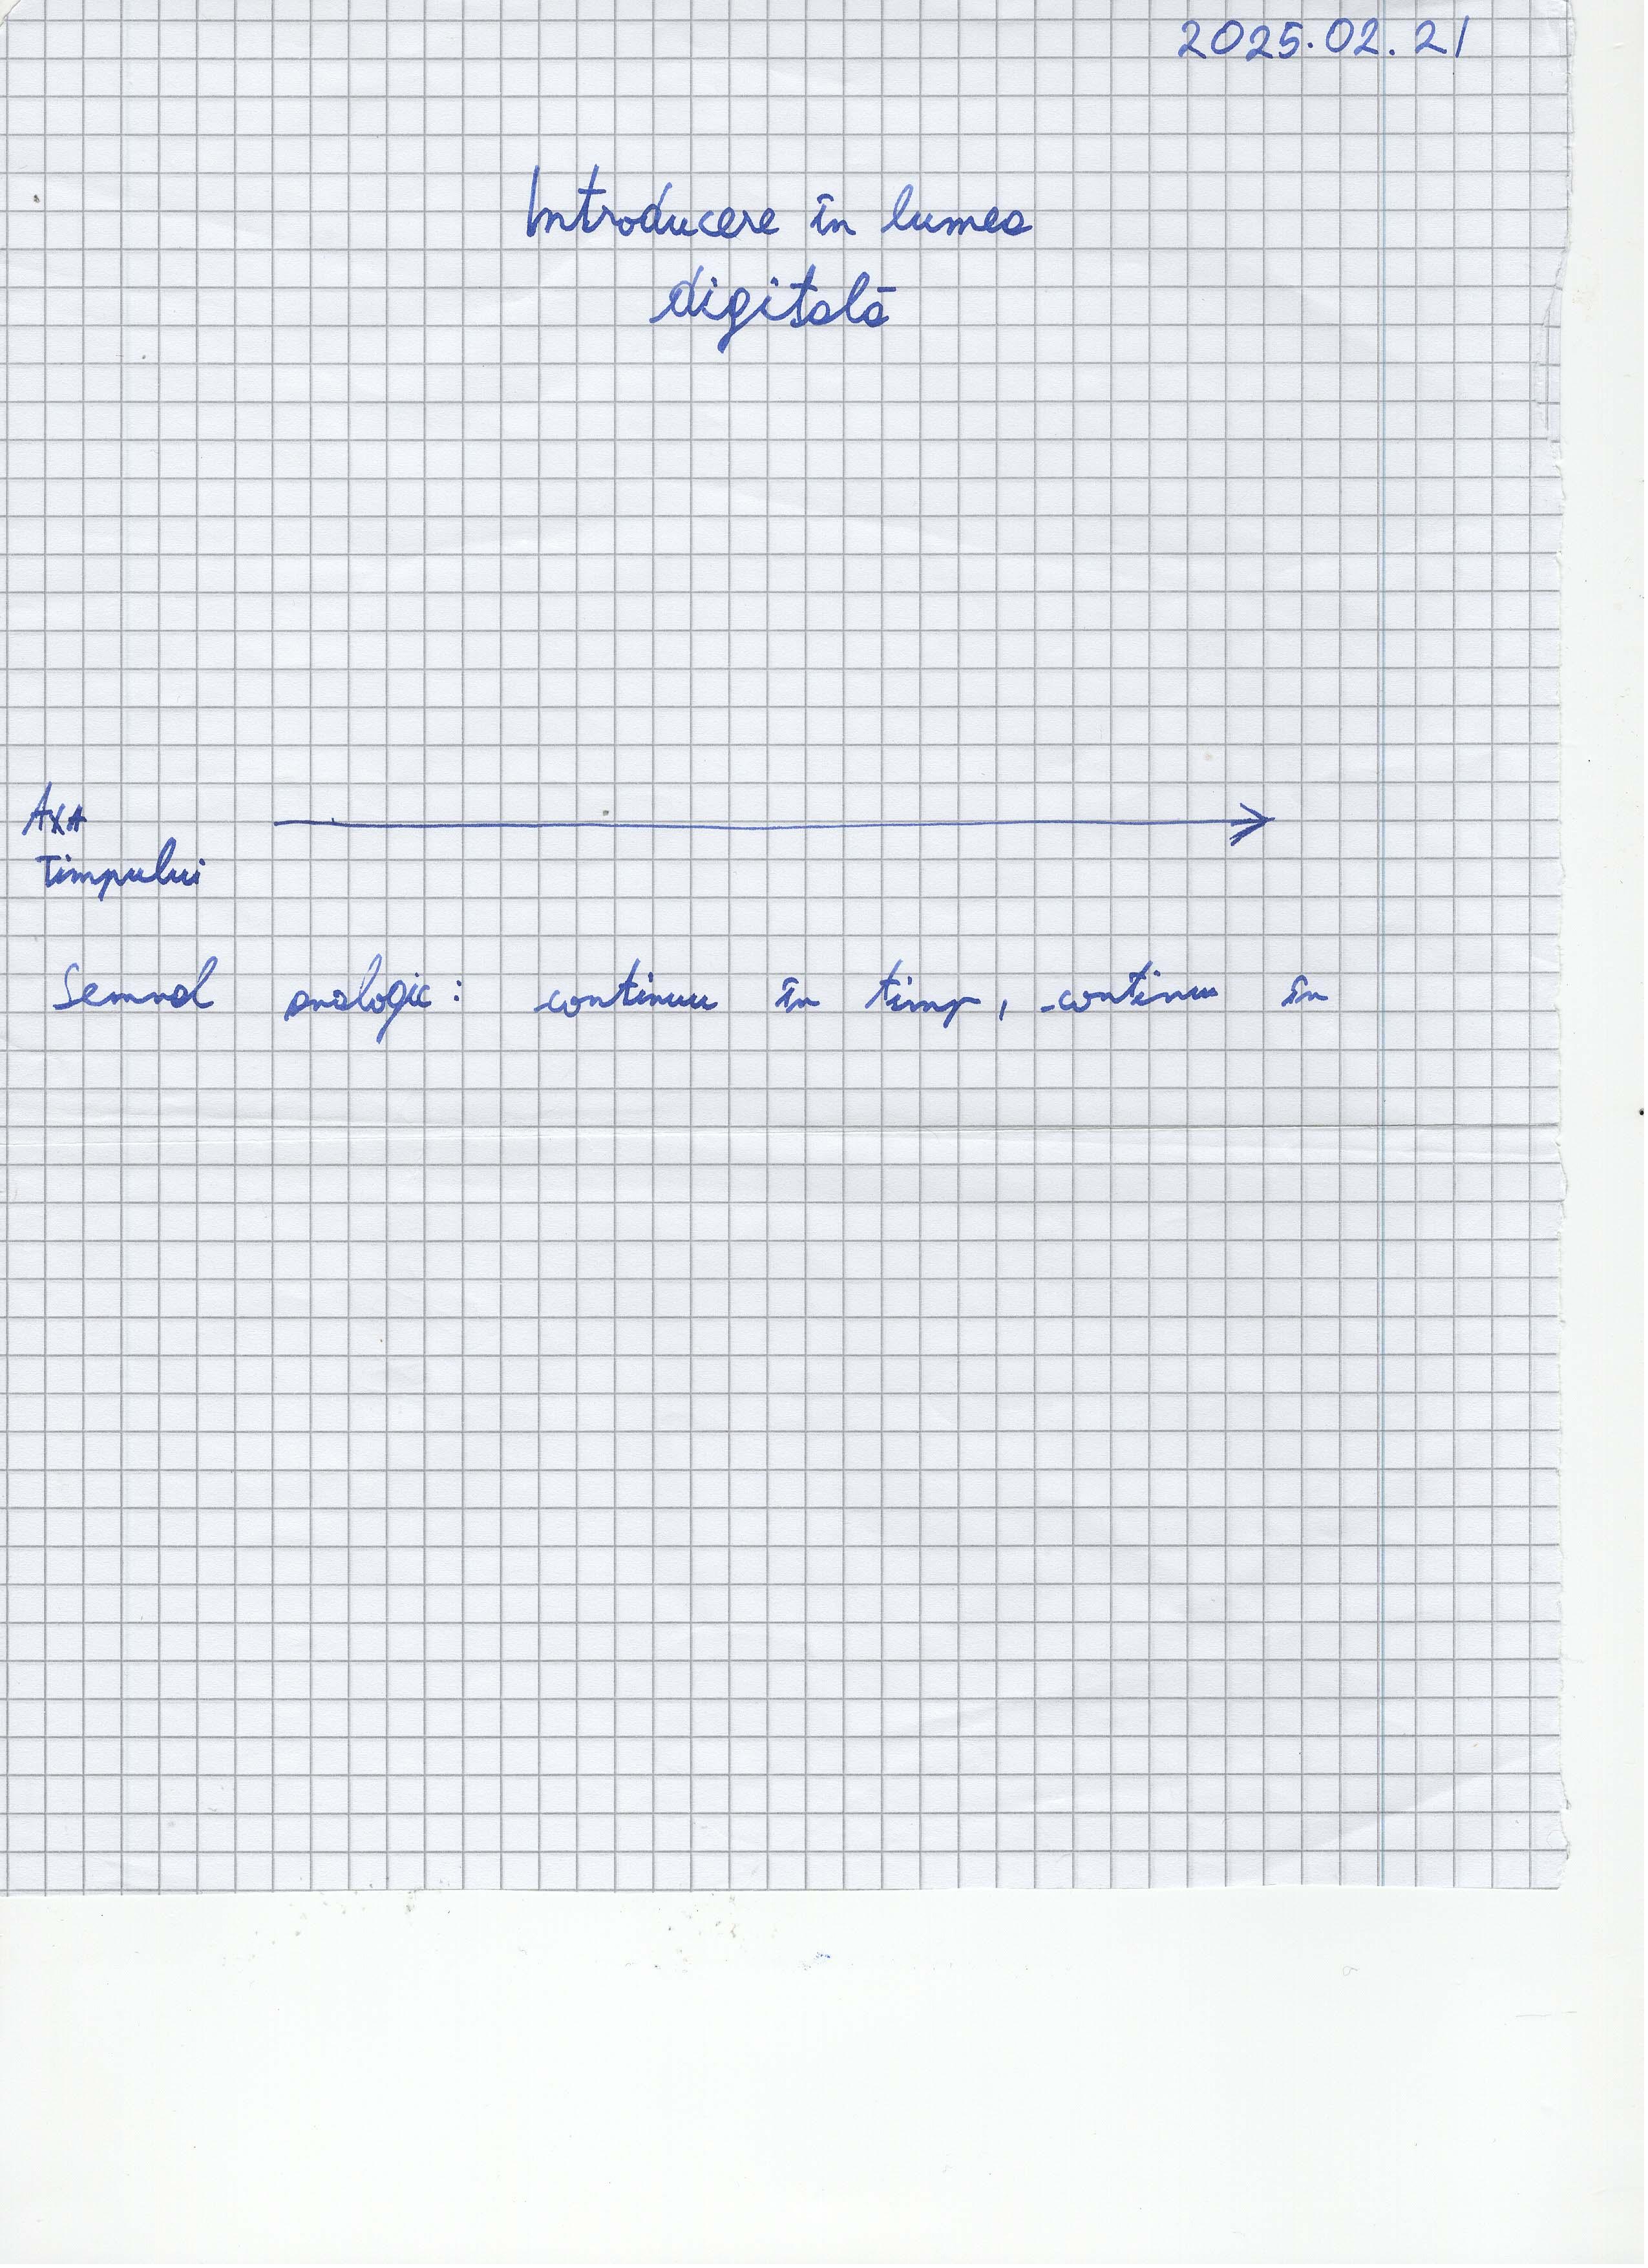 2025.02.21
Introducere în lumea
digitală
AXA
Timpului
Semnal analogic: continuu în timp, continuu în